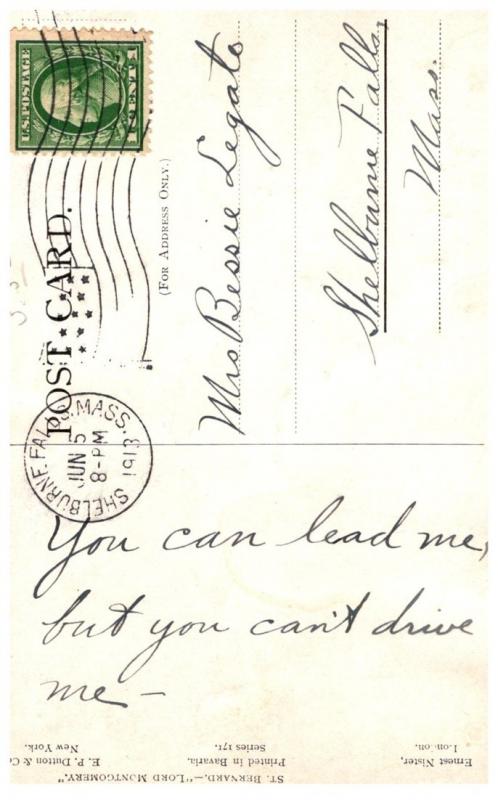 U.S. POSTAGE
1 CENT 1
POST CARD.
(FOR ADDRESS ONLY.)
SHELBURNE FALLS, MASS.
JUN 5
8-PM
1913
Mrs Bessie Legate
Shelburne Falls,
Mass.
You can lead me,
but you can't drive
me —
ST. BERNARD.—"LORD MONTGOMERY".
Ernest Nister,
London.
Printed in Bavaria.
Series 171.
E. P. Dutton & Co
New York.